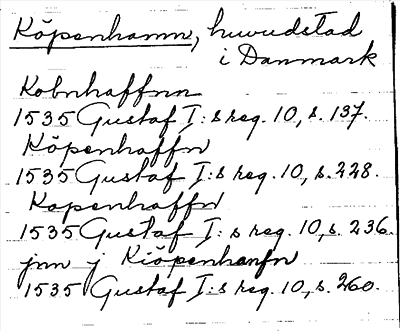 Köpenhamn, huvudstad
i Danmark
Kobnhaffnn
1535 Gustaf I:s reg. 10, s. 137.
Köpenhaffn
1535 Gustaf I:s reg. 10, s. 228.
Kopenhaffn
1535 Gustaf I:s reg. 10, s. 236.
jnn j Kiöpenhanfn
1535 Gustaf I:s reg. 10, s. 260.